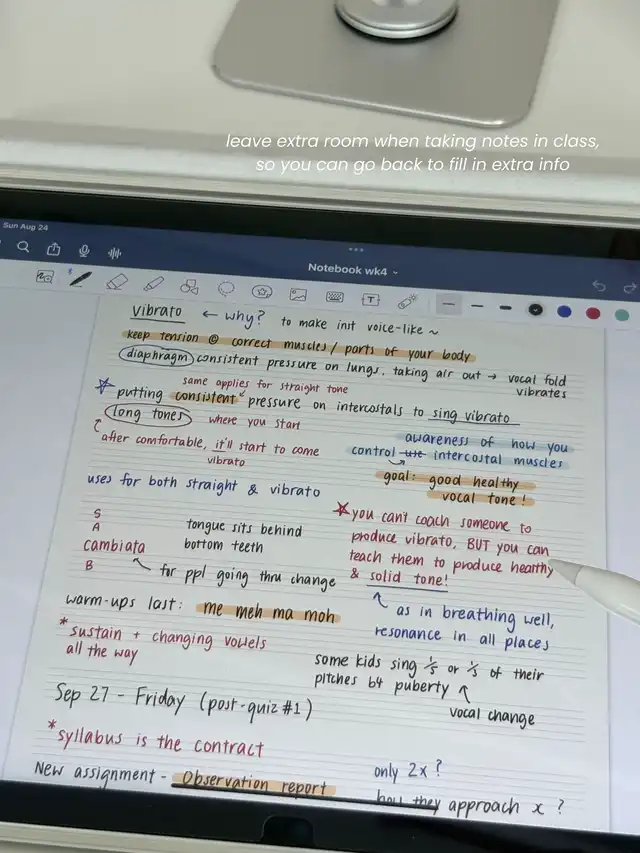 leave extra room when taking notes in class,
so you can go back to fill in extra info
Sun Aug 24
Notebook wk4
T
vibrato ← why? to make inst voice-like ~
keep tension @ correct muscles / parts of your body
diaphragm consistent pressure on lungs, taking air out → vocal fold
vibrates
same applies for straight tone
putting consistent pressure on intercostals to sing vibrato
long tones where you start
after comfortable, it'll start to come
vibrato
awareness of how you
control use intercostal muscles
goal: good healthy
vocal tone!
uses for both straight & vibrato
S
A
cambiata
B
tongue sits behind
bottom teeth
for ppl going thru change
*you can't coach someone to
produce vibrato, BUT you can
teach them to produce healthy
& solid tone!
as in breathing well,
resonance in all places
warm-ups last: me meh ma moh
*sustain + changing vowels
all the way
some kids sing or of their
pitches b4 puberty
vocal change
Sep 27 - Friday (post-quiz #1)
*syllabus is the contract
New assignment - Observation report
only 2x?
how they approach x ?